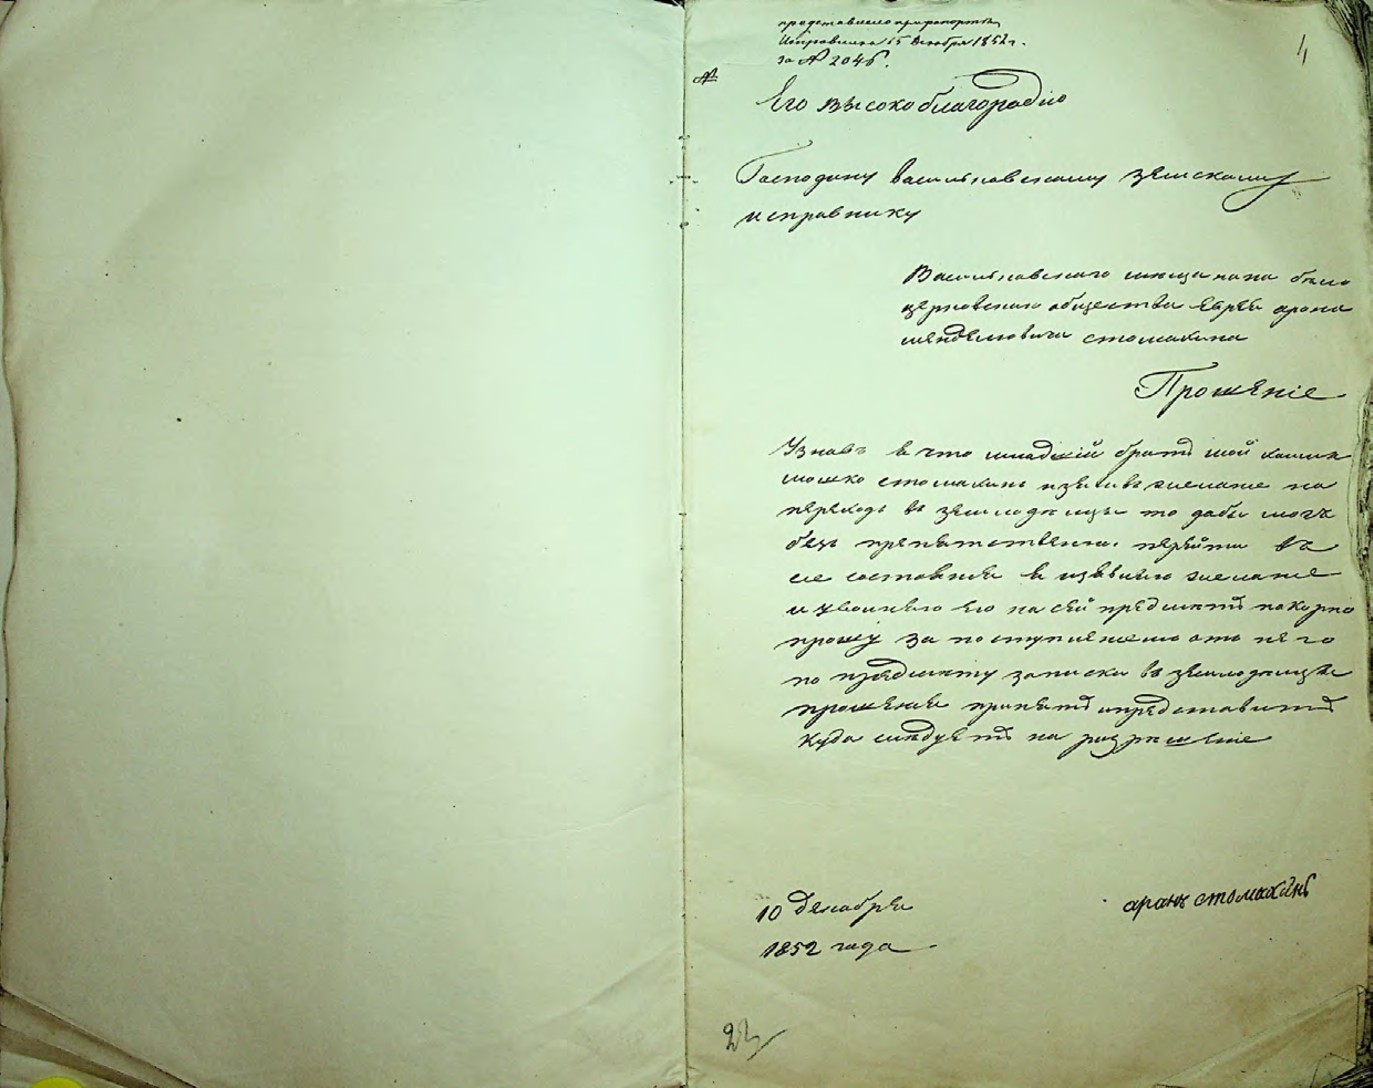 представлено при рапорте
Исправника 15 Декабря 1852 г.
за № 2046.
4
Его высокоблагородию
Господину васильковскому земскому
исправнику
Васильковского мещанина бело
церковского общества еврея арона
менделовича стомахина
Прошеніе
Узнавъ в что младшій братъ мой
мошко стомахинъ изъявивъ желание на
переходъ въ земледельцы то дабы могъ
безъ препятствено перейти въ
сие состояния я изъявляю желание
и уволняю его на сей предметъ покорно
прошу за поступлениемъ отъ него
по предмету записки въ земледельцы
прошения принять и представить
куда следуетъ на разрешение
10 декабря
1852 года
аронъ стомахинъ
22